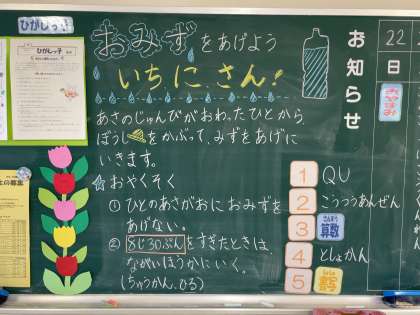 ひがしっこ
ひがしっ子
おみずをあげよう
いち、に、さん!
あさのじゅんびがおわったひとから、
ぼうしをかぶって、みずをあげに
いきます。
☆おやくそく
①ひとのあさがおにおみずを
あげない。
②8じ30ぷんをすぎたときは、
ながいほうかにいく。
(ちゅうかん、ひる)
お知らせ
22
日
1 QU
2 こうつうあんぜん
3 さんすう 算数
4 としょかん
5
の募集